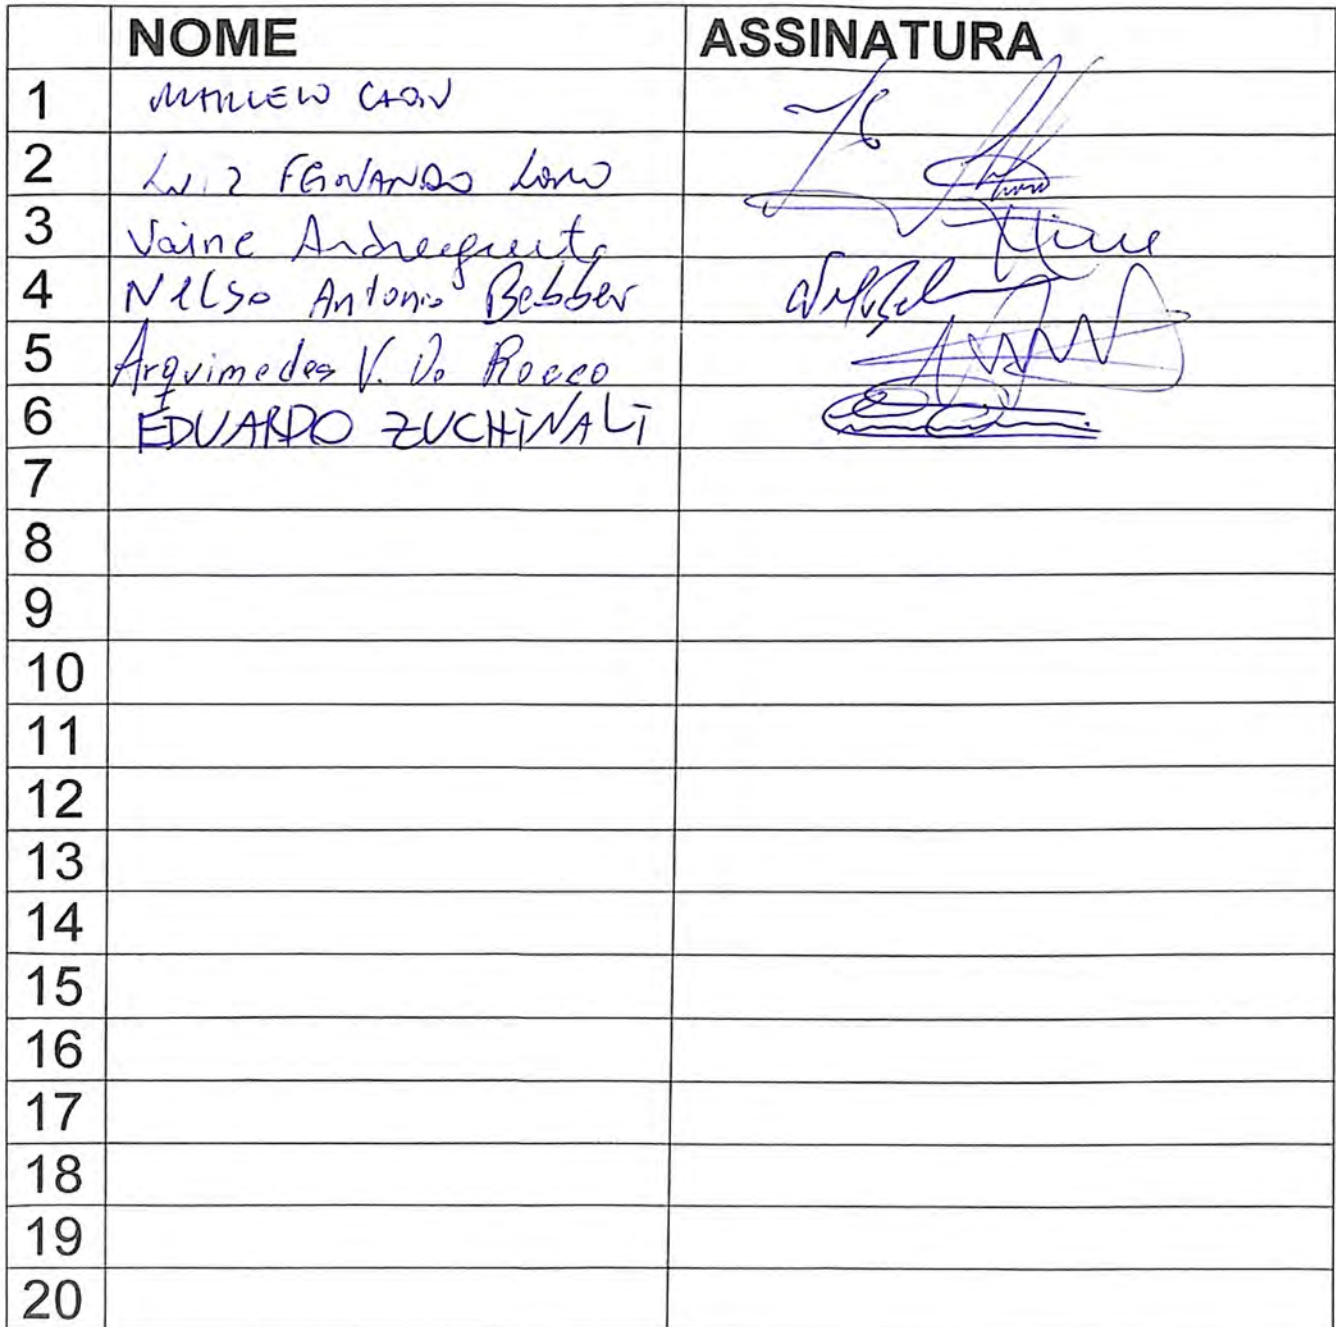 NOME ASSINATURA
1 MARCELO CAON
2 LUIZ FERNANDO
3 Vaine
4 Nelso Antonio Bebber
5 Arquimedes V. D. Rocco
6 EDUARDO ZUCHINALI
7
8
9
10
11
12
13
14
15
16
17
18
19
20